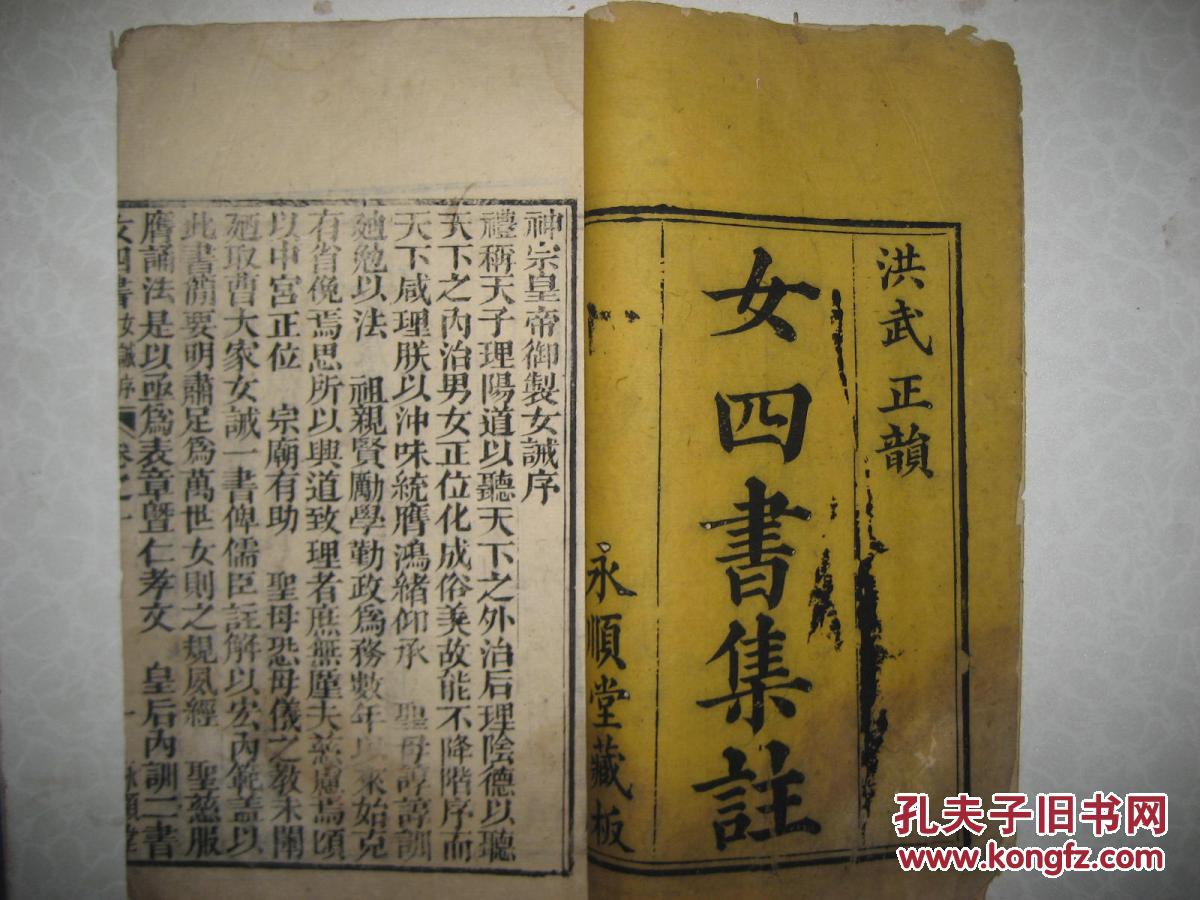 洪武正韻
女四書集註
永順堂藏板
神宗皇帝御製女誡序
禮稱天子理陽道以聽天下之外治后理陰德以聽
天下之內治男女正位化成俗美故能不降階序而
天下咸理朕以沖味統膺鴻緒仰承 聖母諄諄訓
廸勉以法 祖親賢勵學勤政為務數年以來始克
有省俛焉思所以興道致理者庶無墜夫慈慮焉頃
以中宮正位 宗廟有助 聖母恐母儀之教未閑
廼取曹大家女誡一書俾儒臣註解以宏內範盖以
此書簡要明肅足為萬世女則之規風經 聖慈服
膺誦法是以亟為表章暨仁孝文 皇后內訓二書
女四書 女誡序 卷之一 一 永順堂
孔夫子旧书网
www.kongfz.com